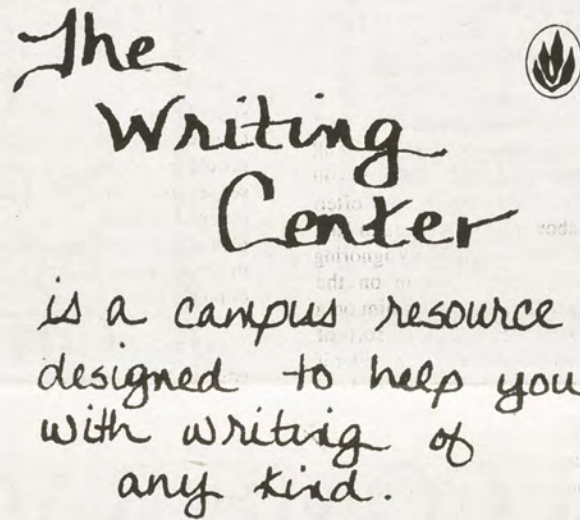 The
Writing
Center
is a campus resource
designed to help you
with writing of
any kind.